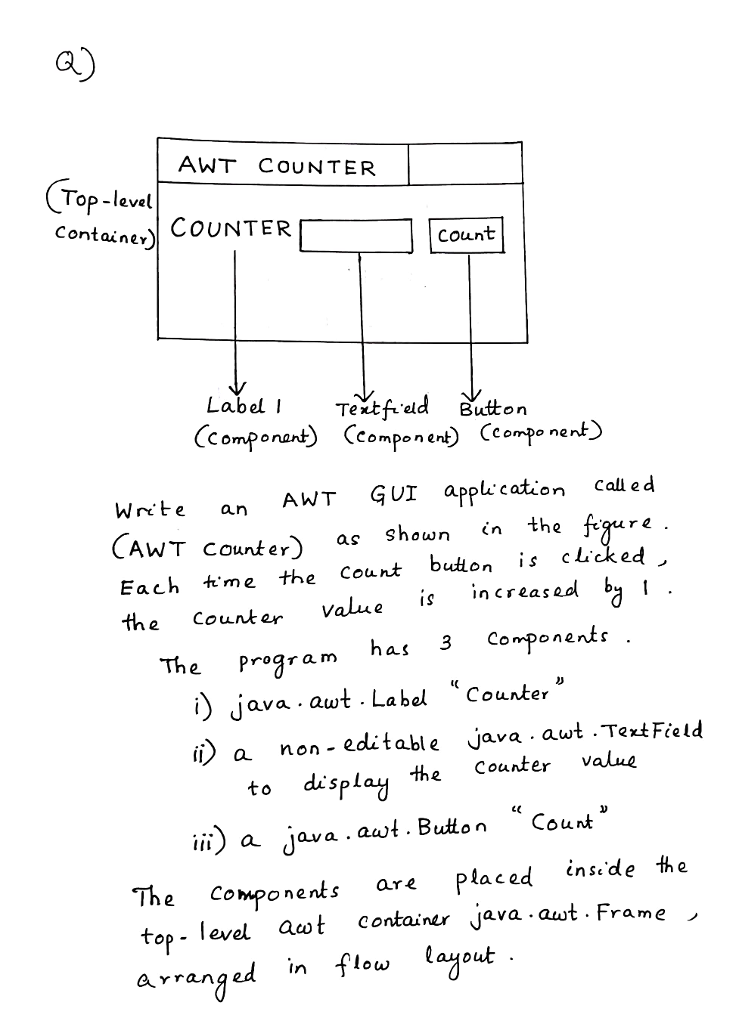 Q)
AWT COUNTER
(Top-level
Container)
COUNTER
Count
Label 1 Textfield Button
(Component) (Component) (Component)
Write an AWT GUI application called
(AWT Counter) as shown in the figure.
Each time the count button is clicked,
the counter value is increased by 1.
The program has 3 components.
i) java.awt.Label "Counter"
ii) a non-editable java.awt.TextField
to display the counter value
iii) a java.awt.Button "Count"
The components are placed inside the
top-level awt container java.awt.Frame,
arranged in flow layout.